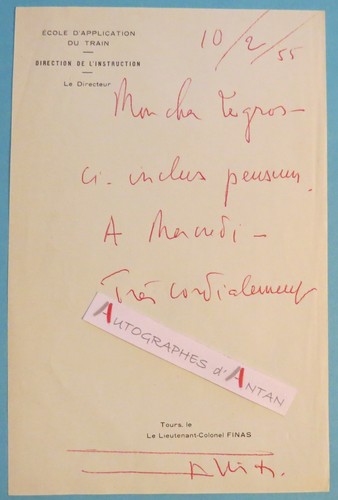 ÉCOLE D'APPLICATION
DU TRAIN
DIRECTION DE L'INSTRUCTION
Le Directeur
10/2/55
Mon cher Legros –
ci-inclus pensum.
A Mercredi –
Très cordialement
AUTOGRAPHES d'ANTAN
Tours, le
Le Lieutenant-Colonel FINAS